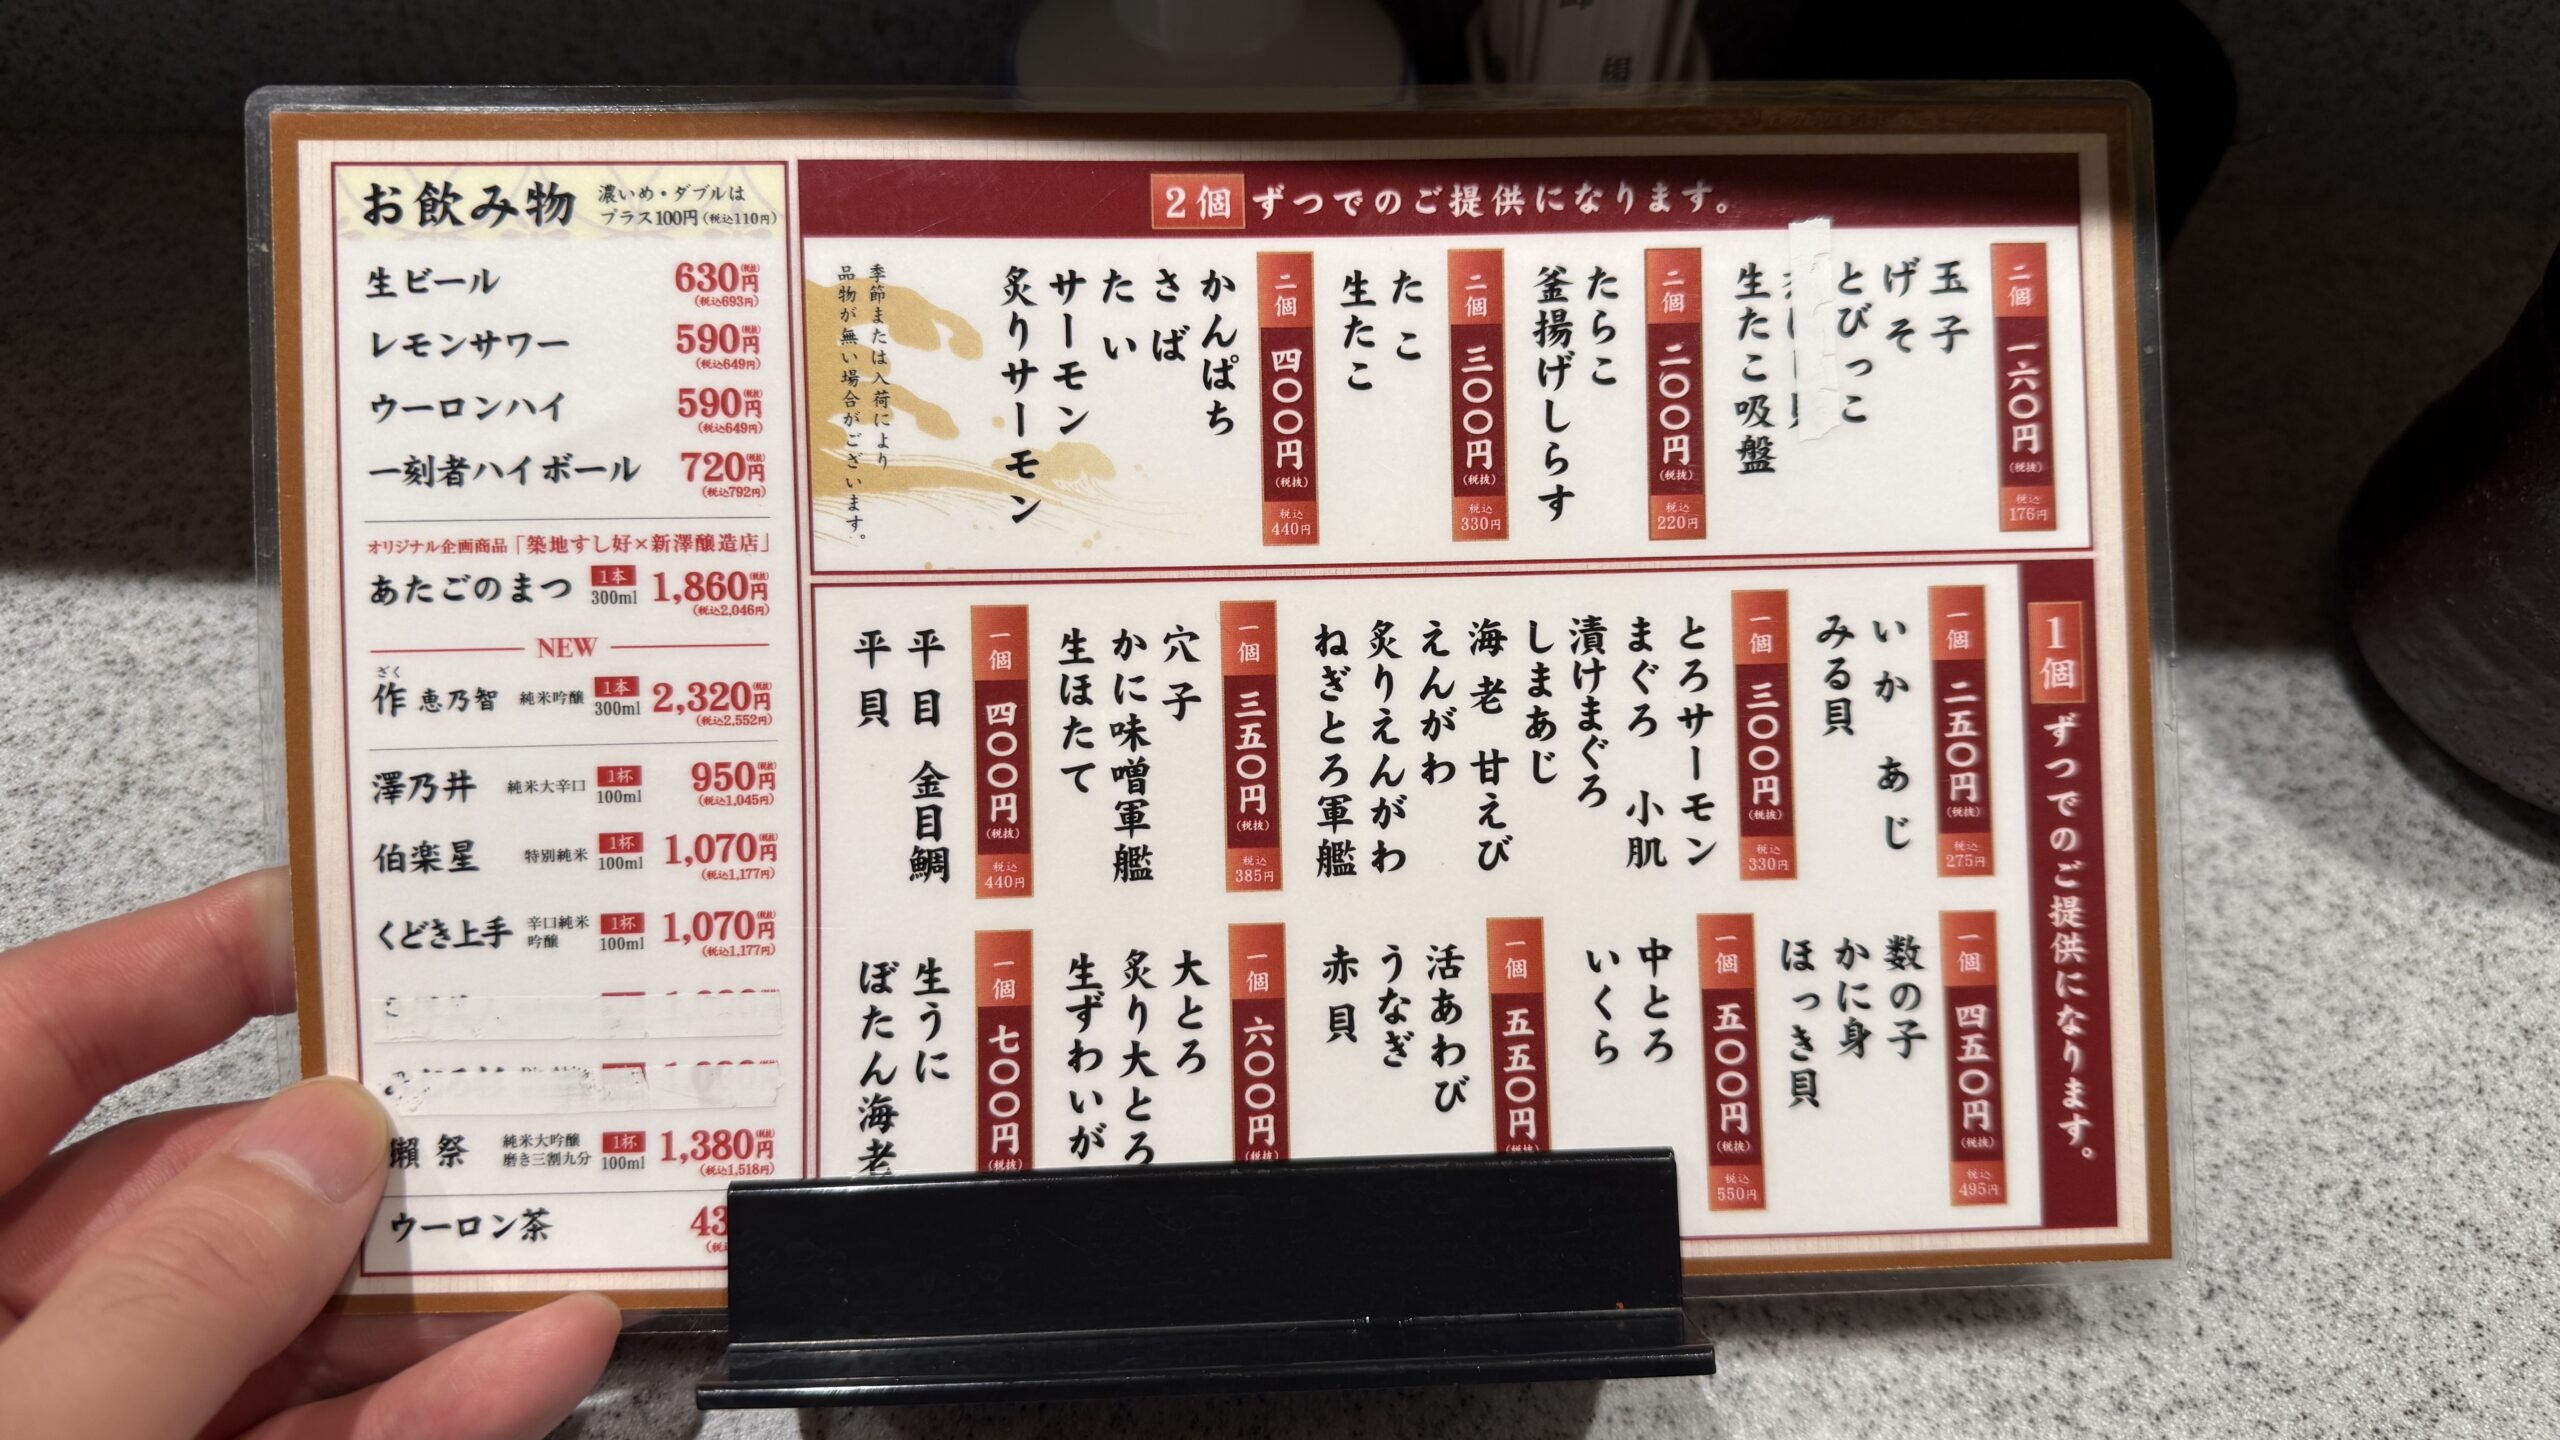 お飲み物
濃いめ・ダブルは
プラス100円(税込110円)
生ビール 630円(税抜)
(税込693円)
レモンサワー 590円(税抜)
(税込649円)
ウーロンハイ 590円(税抜)
(税込649円)
一刻者ハイボール 720円(税抜)
(税込792円)
オリジナル企画商品「築地すし好×新澤醸造店」
あたごのまつ 1本 300ml 1,860円(税抜)
(税込2,046円)
NEW
ざく
作 恵乃智 純米吟醸 1本 300ml 2,320円(税抜)
(税込2,552円)
澤乃井 純米大辛口 1杯 100ml 950円(税抜)
(税込1,045円)
伯楽星 特別純米 1杯 100ml 1,070円(税抜)
(税込1,177円)
くどき上手 辛口純米吟醸 1杯 100ml 1,070円(税抜)
(税込1,177円)
獺祭 純米大吟醸 磨き三割九分 1杯 100ml 1,380円(税抜)
(税込1,518円)
ウーロン茶 43
2個ずつでのご提供になります。
二個 一六〇円(税抜) 税込176円
玉子
げそ
とびっこ
生たこ吸盤
二個 二〇〇円(税抜) 税込220円
たらこ
釜揚げしらす
二個 三〇〇円(税抜) 税込330円
たこ
生たこ
二個 四〇〇円(税抜) 税込440円
かんぱち
さば
たい
サーモン
炙りサーモン
季節または入荷により
品物が無い場合がございます。
1個ずつでのご提供になります。
一個 二五〇円(税抜) 税込275円
いか あじ
みる貝
一個 三〇〇円(税抜) 税込330円
とろサーモン
まぐろ 小肌
漬けまぐろ
しまあじ
海老 甘えび
えんがわ
炙りえんがわ
ねぎとろ軍艦
一個 三五〇円(税抜) 税込385円
穴子
かに味噌軍艦
生ほたて
一個 四〇〇円(税抜) 税込440円
平目 金目鯛
平貝
一個 四五〇円(税抜) 税込495円
数の子
かに身
ほっき貝
一個 五〇〇円(税抜) 税込550円
中とろ
いくら
一個 五五〇円(税抜)
活あわび
うなぎ
赤貝
一個 六〇〇円(税抜)
大とろ
炙り大とろ
生ずわいが
一個 七〇〇円(税抜)
生うに
ぼたん海老